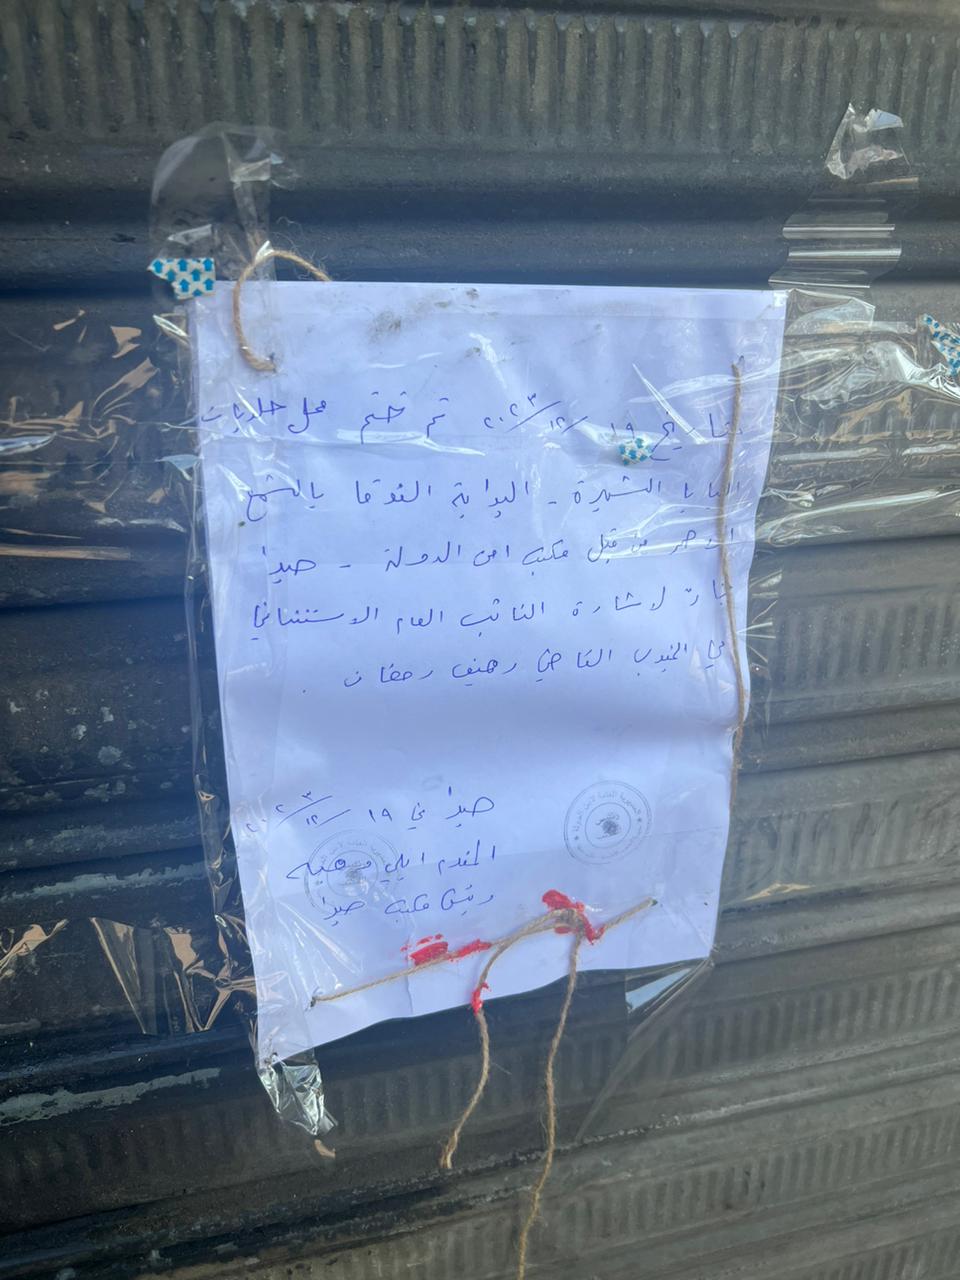 بتاريخ ١٩/١٢/٢٠٢٣ تم ختم محل حلويات
البابا الشهيرة - البوابة الفوقا بالشمع
الاحمر من قبل مكتب امن الدولة - صيدا
بناءً لاشارة النائب العام الاستئنافي
في الجنوب القاضي رهيف رمضان .
صيدا في ١٩/١٢/٢٠٢٣
المقدم ايلي
رئيس مكتب صيدا